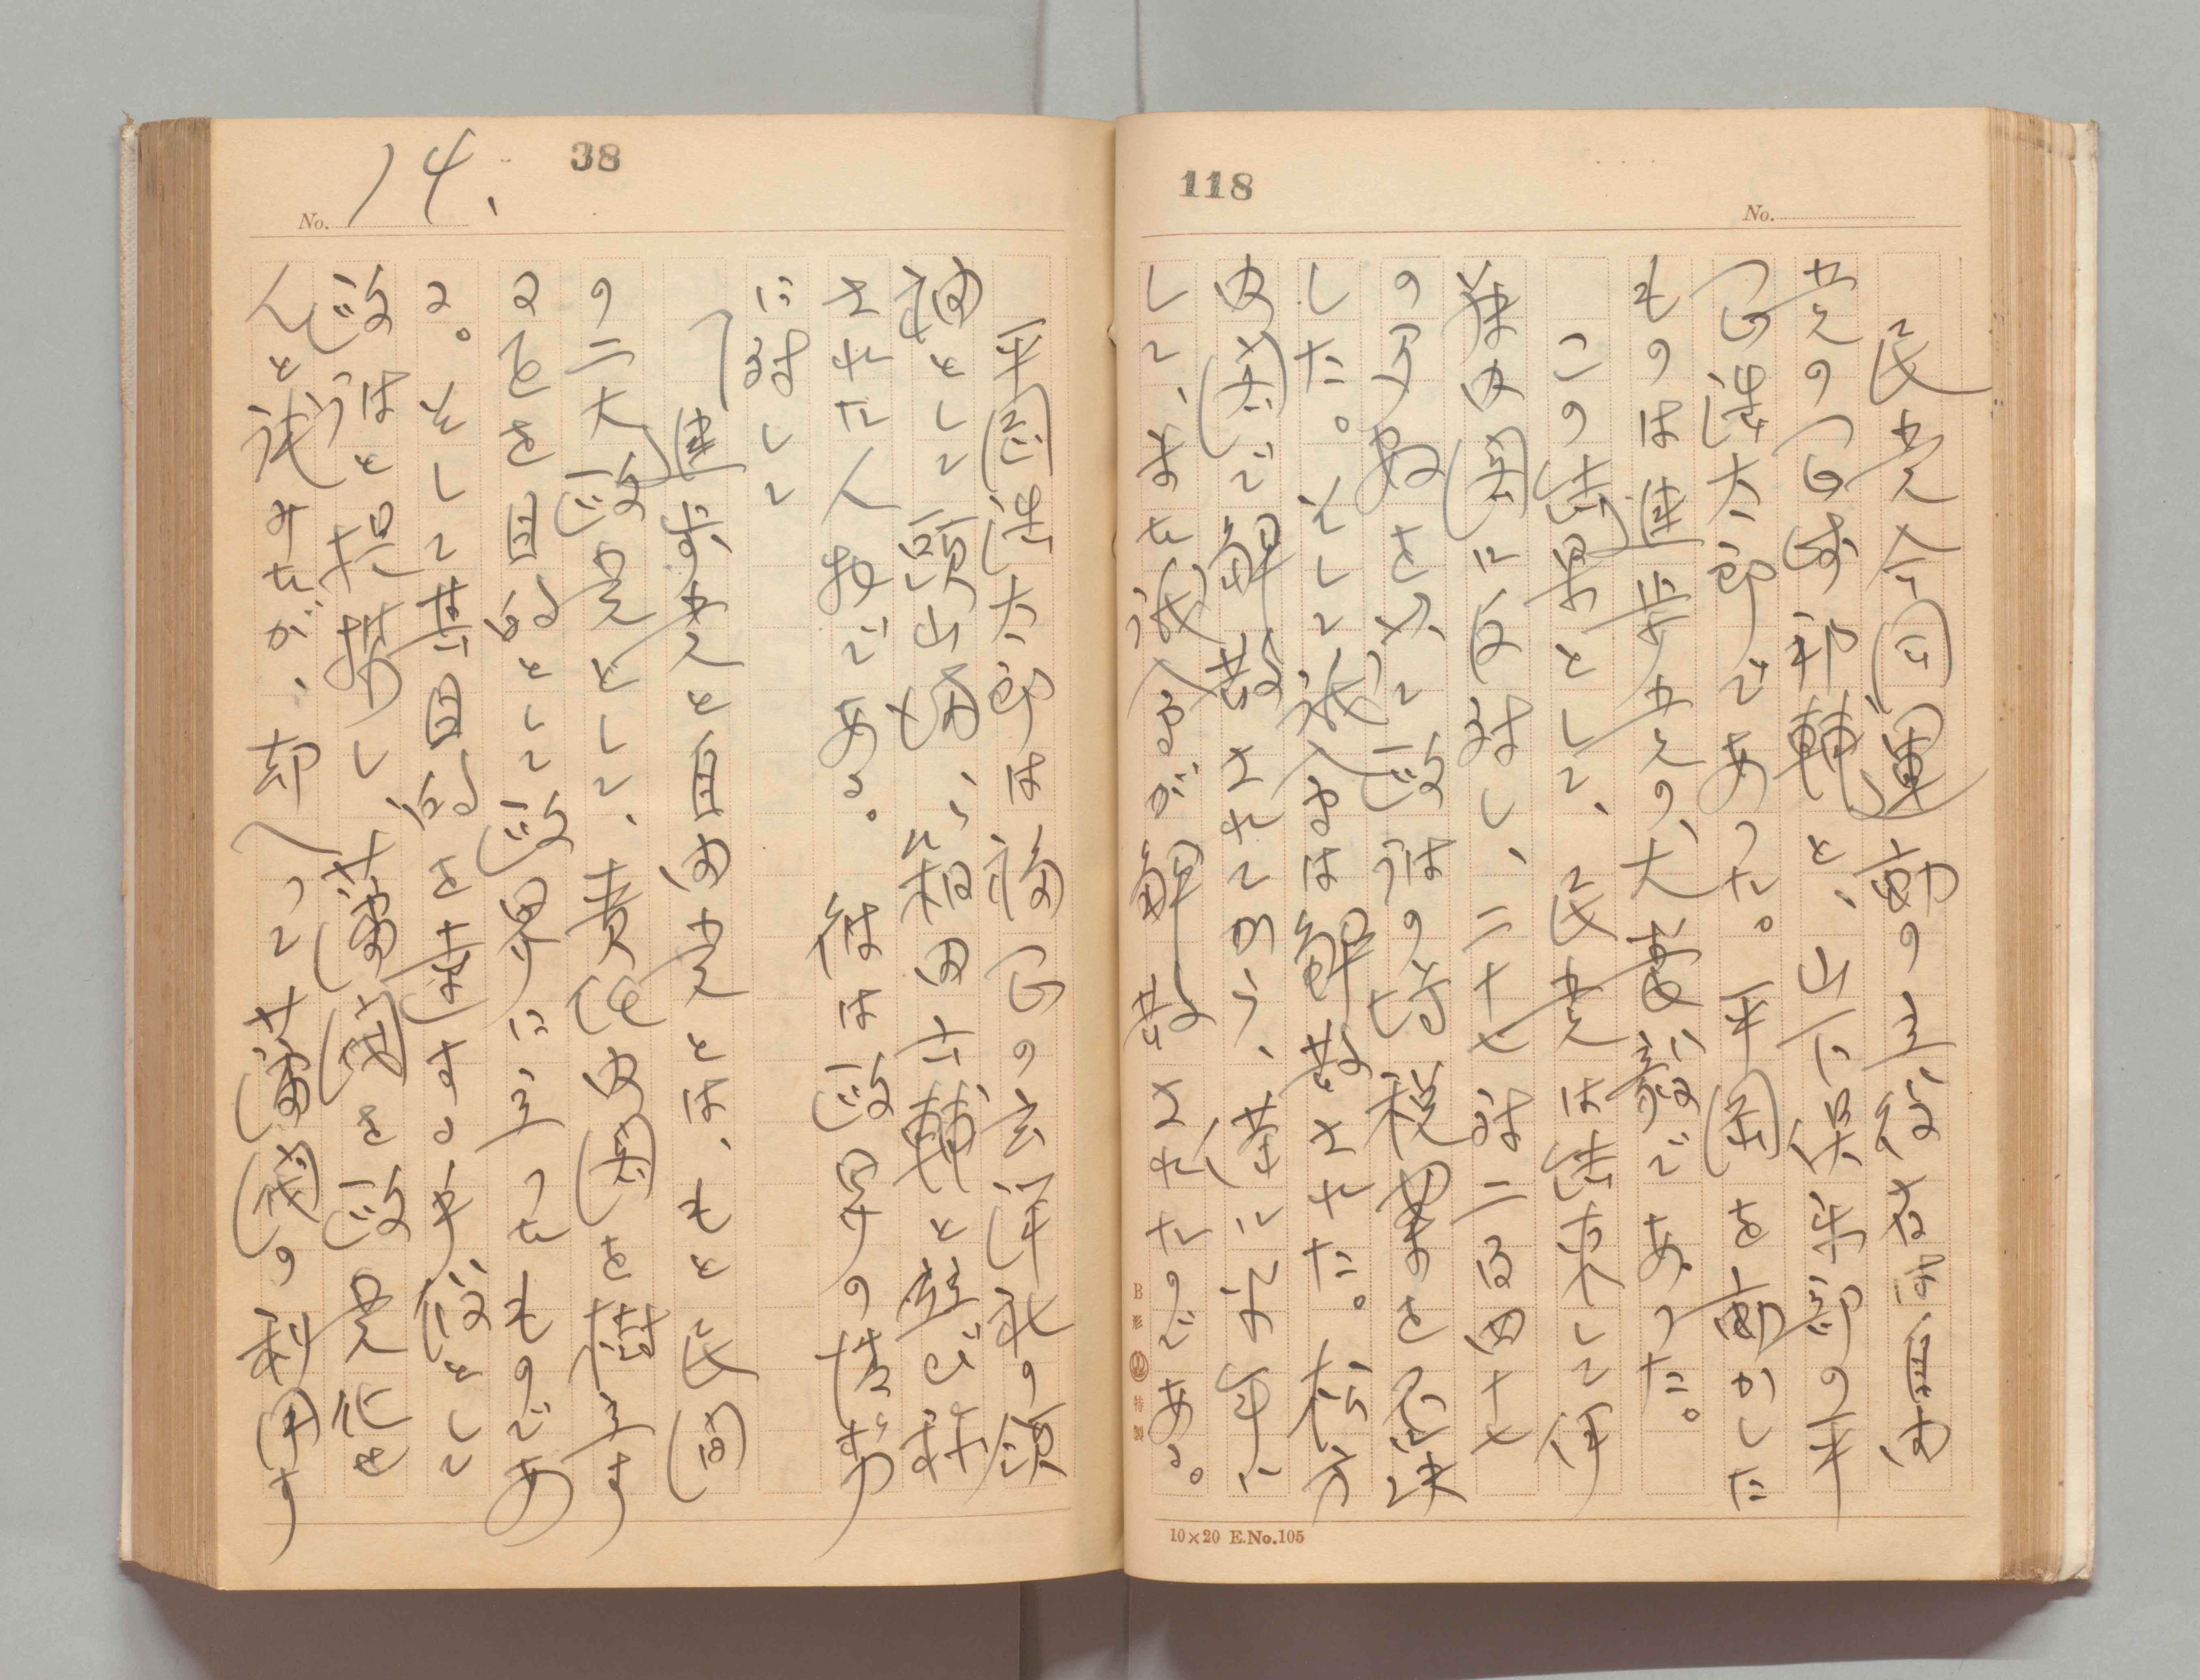 118
No.
民党合同運動の立役者は、自由
党の岡崎邦輔と、山下倶楽部の平
岡浩太郎であった。平岡を動かした
ものは進歩党の犬養毅であった。
この結果として、民党は結束して伊
藤内閣に反対し、二十七対二百四十七
の多数を以て政府の増税案を否決
した。そして議会は解散された。松方
内閣で解散されてから、僅に半年に
して、また議会が解散されたのである。
10×20 E.No.105
B形 特製
38
No. 14.
平岡浩太郎は福岡の玄洋社の領
袖として頭山満、箱田六輔と並び称
された人物である。彼は政界の情勢
に対して
「進歩党と自由党とは、もと民間
の二大政党として、責任内閣を樹立す
ることを目的として政界に立つたものであ
る。そして其目的を達する手段として
政府と提携し、藩閥を政党化せ
んと試みたが、却つて藩閥の利用す